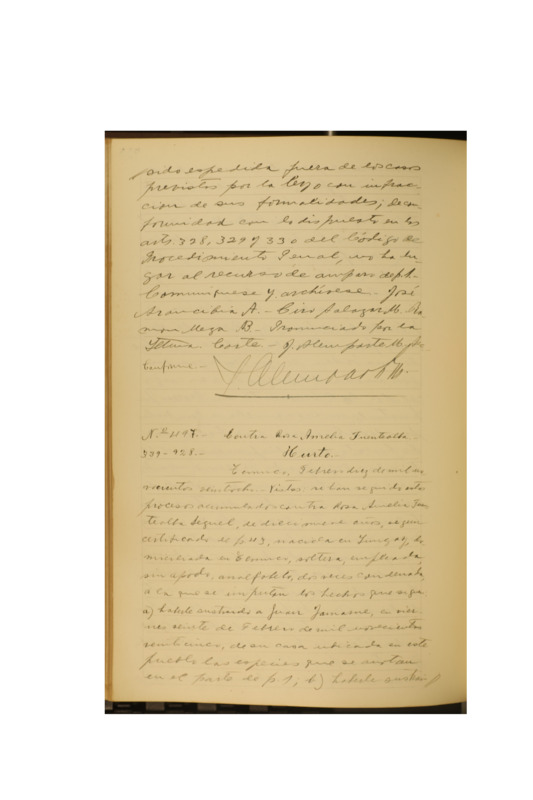 sido espedida fuera de los casos
previstos por la ley o con infrac-
cion de sus formalidades; de con
formidad con lo dispuesto en los
arts. 328, 329 y 330 del Código de
Procedimiento Penal, no ha lu-
gar al recurso de amparo de p.1.
Comuníquese y archívese. José
Arancibia A. - Ciro Salazar M. Ra
mon Mega B. - Pronunciado por la
Iltma. Corte - J. Alemparte M.
Conforme. -
J Alemparte M.
N.º 1197. - Contra Rosa Amelia Fuentealba.
 - 928. - Hurto.
Temuco, Febrero diez de mil no
vecientos veintiocho. Vistos: se han seguido estos
procesos acumulados contra Rosa Amelia Fuen
tealba Seguel, de diecinueve años, segun
certificado de p. 43, nacida en Yungay, do
miciliada en Temuco, soltera, empleada,
sin apodo, analfabeta, dos veces condenada,
a la que se imputan los hechos que siguen:
a) haberle sustraido a Juan en vier-
nes veinte de Febrero de mil novecientos
veinticinco, de su casa ubicada en este
pueblo las especies que se anotan
en el parte de p. 1; b) haberle sustrai